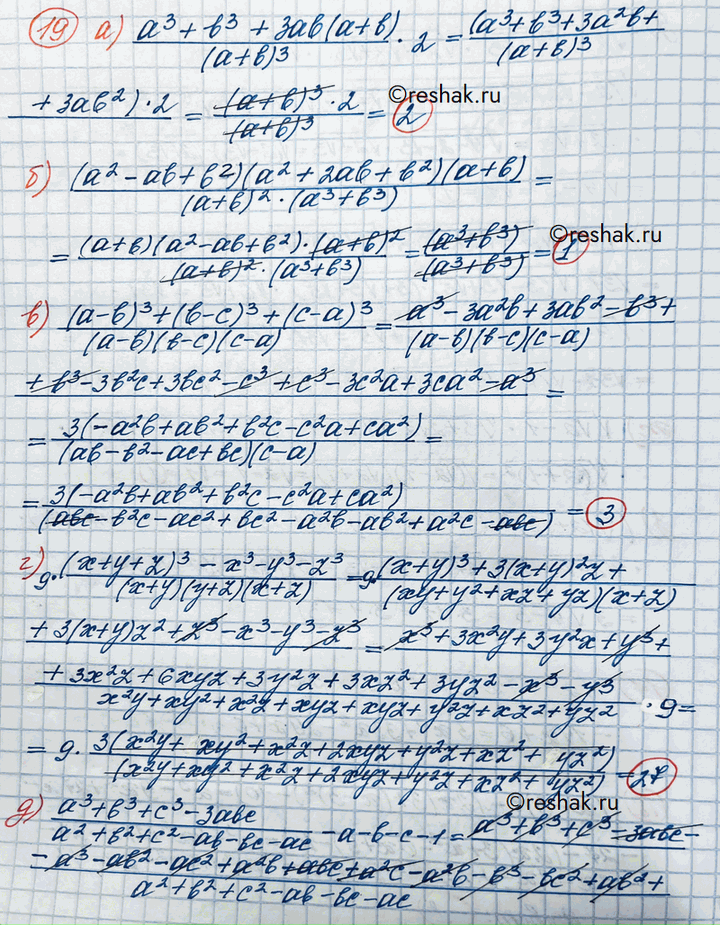 19 а) (a³ + b³ + 3ab(a+b))/(a+b)³ · 2 = (a³+b³+3a²b+
+ 3ab²)·2/(a+b)³ = (a+b)³·2/(a+b)³ = 2
©reshak.ru
б) (a² - ab + b²)(a² + 2ab + b²)(a+b)/((a+b)²·(a³+b³)) =
= (a+b)(a²-ab+b²)·(a+b)²/((a+b)²·(a³+b³)) = (a³+b³)/(a³+b³) = 1
©reshak.ru
в) ((a-b)³+(b-c)³+(c-a)³)/((a-b)(b-c)(c-a)) = (a³-3a²b+3ab²-b³+
+b³-3b²c+3bc²-c³+c³-3c²a+3ca²-a³)/((a-b)(b-c)(c-a)) =
= 3(-a²b+ab²+b²c-c²a+ca²)/((ab-b²-ac+bc)(c-a)) =
= 3(-a²b+ab²+b²c-c²a+ca²)/(abc-b²c-ac²+bc²-a²b-ab²+a²c-abc) = 3
г) 9·((x+y+z)³-x³-y³-z³)/((x+y)(y+z)(x+z)) = 9·((x+y)³+3(x+y)²z+
+3(x+y)z²+z³-x³-y³-z³)/((xy+y²+xz+yz)(x+z)) = (x³+3x²y+3y²x+y³+
+3x²z+6xyz+3y²z+3xz²+3yz²-x³-y³)/(x²y+xy²+x²z+xyz+xyz+y²z+xz²+yz²) · 9 =
= 9·3(x²y+xy²+x²z+2xyz+y²z+xz²+yz²)/(x²y+xy²+x²z+2xyz+y²z+xz²+yz²) = 27
©reshak.ru
д) (a³+b³+c³-3abc)/(a²+b²+c²-ab-bc-ac) -a-b-c-1 = (a³+b³+c³-3abc-
-a³-ab²-ac²+a²b+abc+a²c-a²b-b³-bc²+ab²+
a²+b²+c²-ab-bc-ac